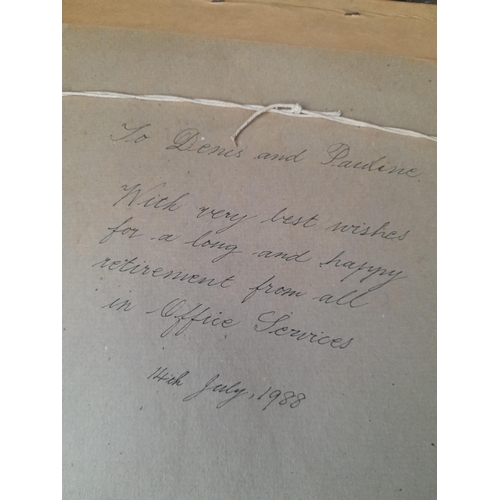 To Denis and Pauline.
With very best wishes
for a long and happy
retirement from all
in Office Services
14th July, 1988